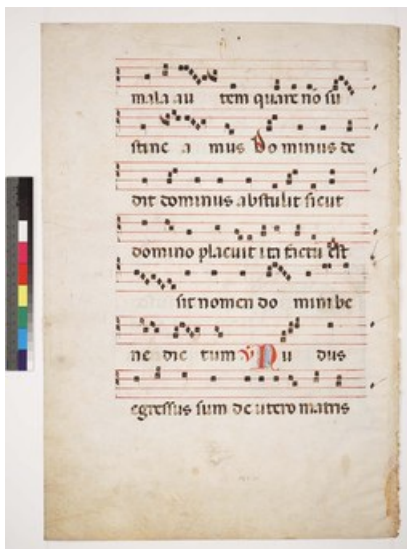 mala au tem quare nō su
stine a mus Do minus de
dit dominus abstulit sicut
domino placuit ita factū est
sit nomen do mini be
ne dic tum ℣ Nu dus
egressus sum de utero matris